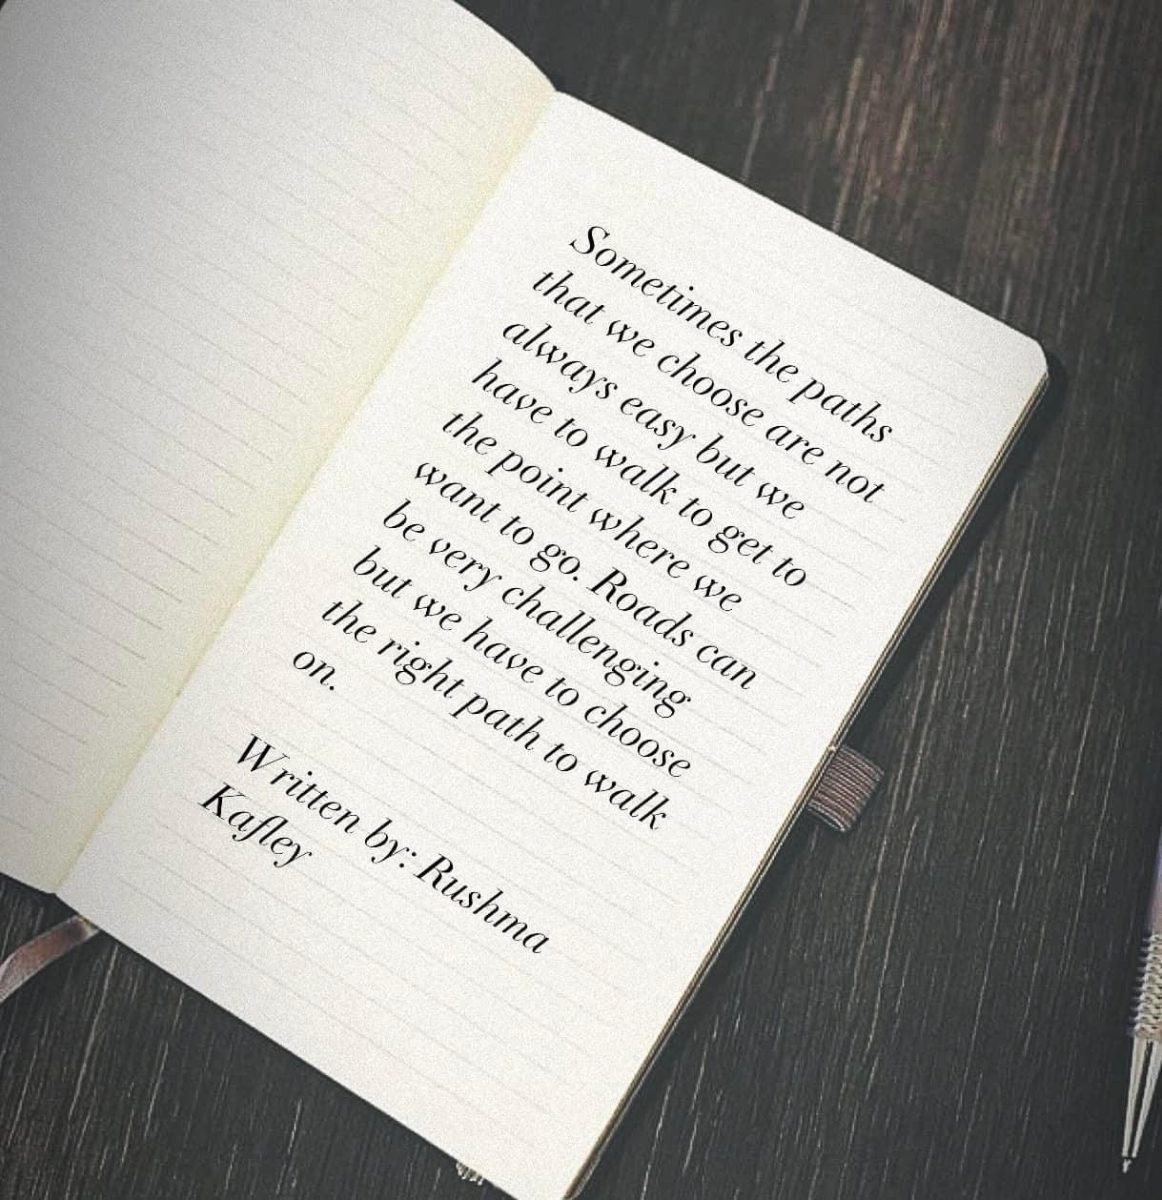 Sometimes the paths
that we choose are not
always easy but we
have to walk to get to
the point where we
want to go. Roads can
be very challenging
but we have to choose
the right path to walk
on.
Written by: Rushma
Kafley